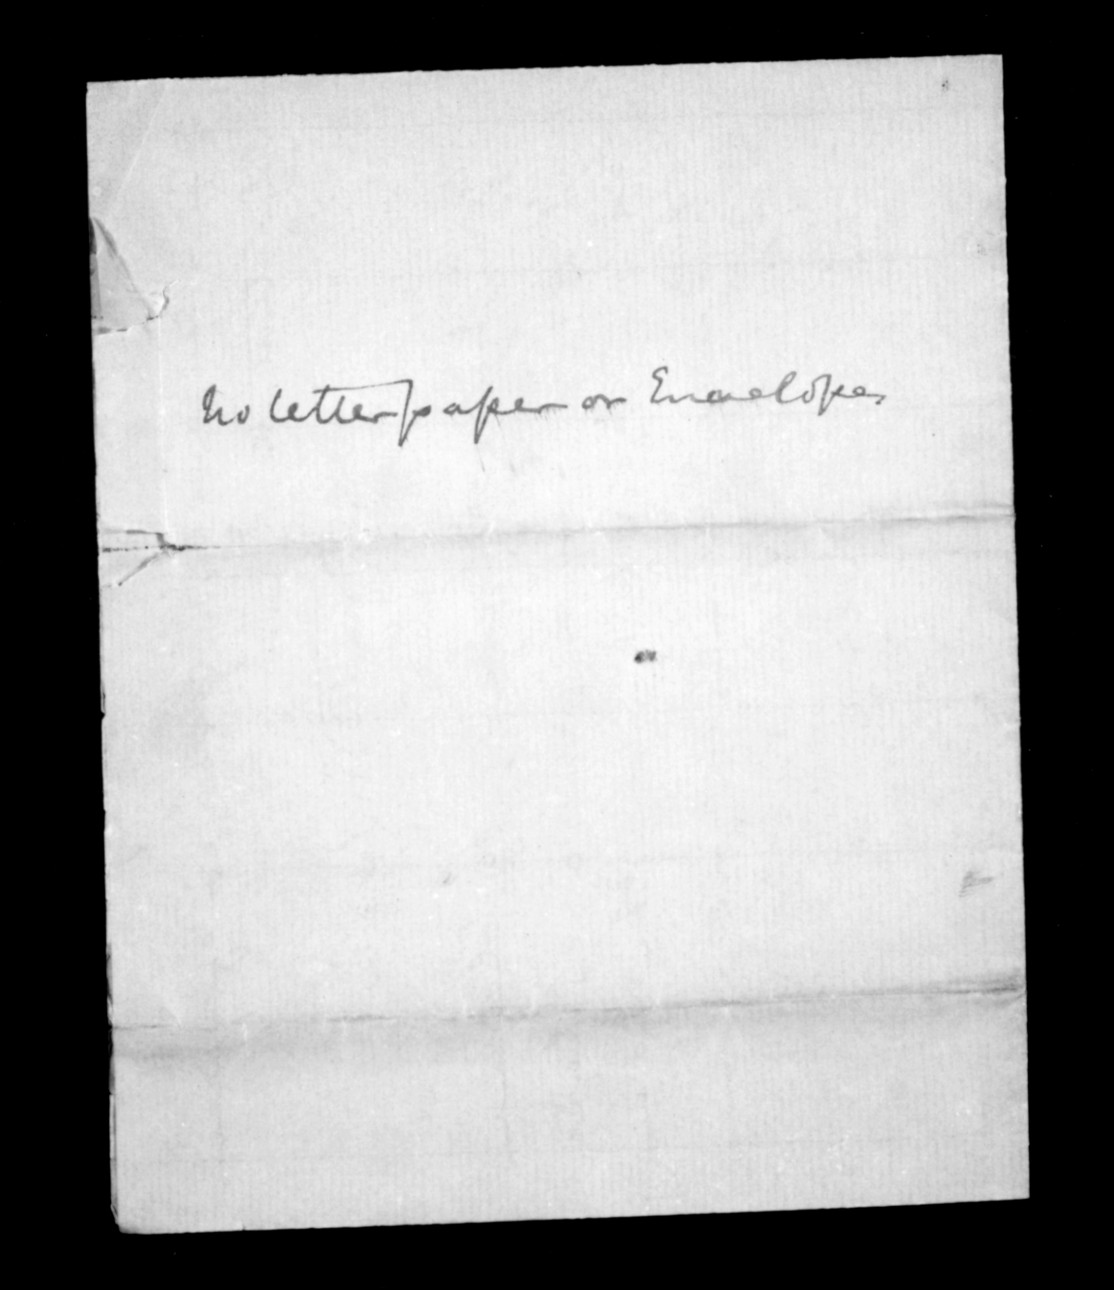 No letter paper or Envelopes